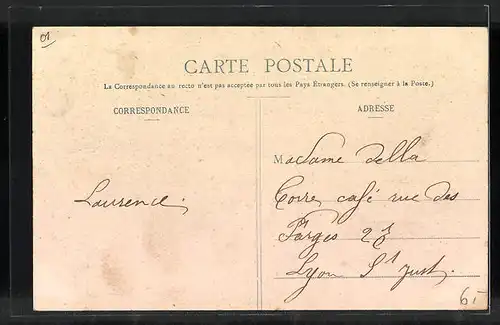 01
CARTE POSTALE
La Correspondance au recto n'est pas acceptée par tous les Pays Étrangers. (Se renseigner à la Poste.)
CORRESPONDANCE
ADRESSE
Madame della
Torre café rue des
Farges 28
Lyon St just.
Laurence.
6,-